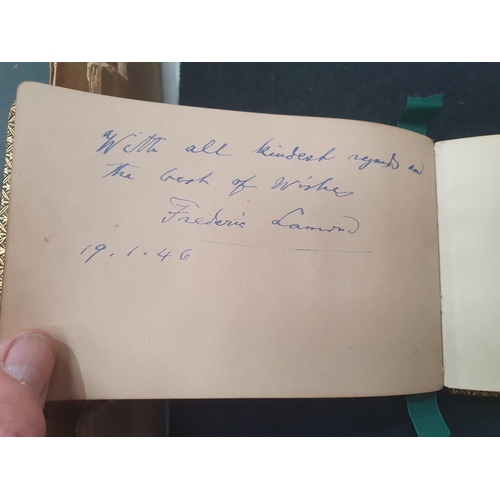 "With all kindest regards and
the best of Wishes
Frederic Lamond
19.1.46